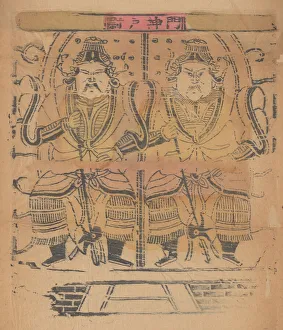 門神戶尉